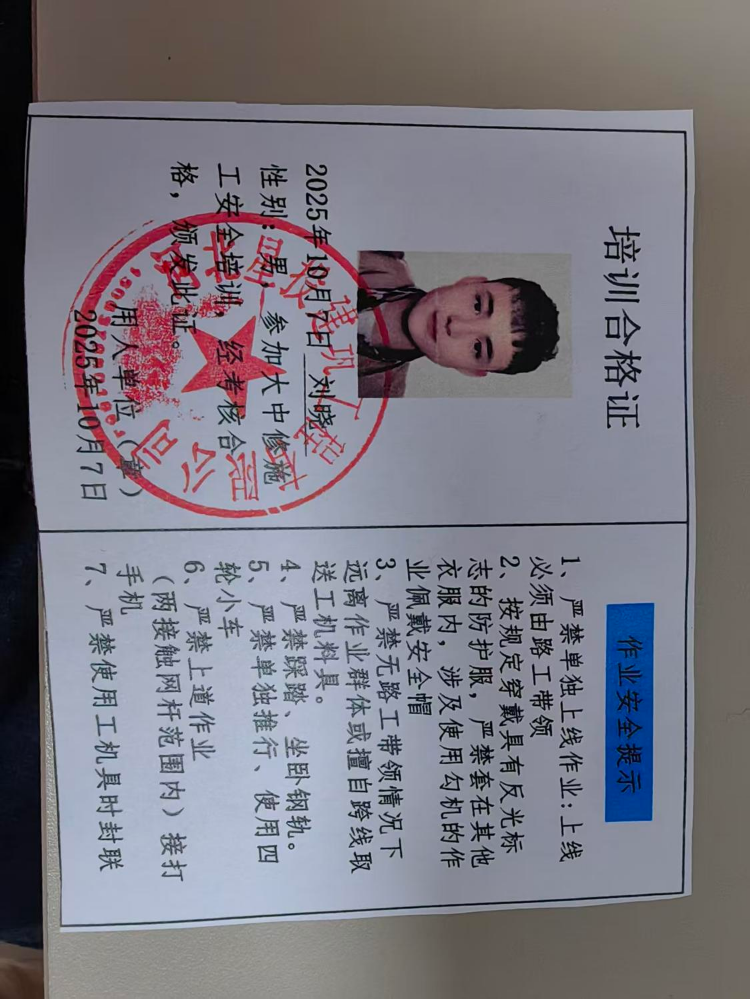 培训合格证
2025年10月7日 刘晓
性别：男，参加大中修施
工安全培训，经考核合
格，颁发此证。
用人单位（章）
2025年10月7日
作业安全提示
1、严禁单独上线作业:上线
必须由路工带领
2、按规定穿戴具有反光标
志的防护服，严禁套在其他
衣服内，涉及使用勾机的作
业佩戴安全帽
3、严禁无路工带领情况下
远离作业群体或擅自跨线取
送工机料具。
4、严禁踩踏、坐卧钢轨。
5、严禁单独推行、使用四
轮小车
6、严禁上道作业
（两接触网杆范围内）接打
手机
7、严禁使用工机具时封联